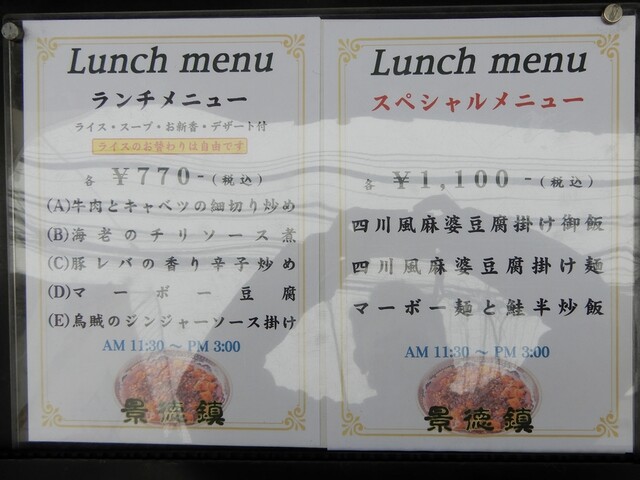 Lunch menu
ランチメニュー
ライス・スープ・お新香・デザート付
ライスのお替わりは自由です
各 ￥770-(税込)
(A)牛肉とキャベツの細切り炒め
(B)海老のチリソース煮
(C)豚レバの香り辛子炒め
(D)マーボー豆腐
(E)烏賊のジンジャーソース掛け
AM 11:30 ～ PM 3:00
景徳鎮
Lunch menu
スペシャルメニュー
各 ￥1,100-(税込)
四川風麻婆豆腐掛け御飯
四川風麻婆豆腐掛け麺
マーボー麺と鮭半炒飯
AM 11:30 ～ PM 3:00
景徳鎮